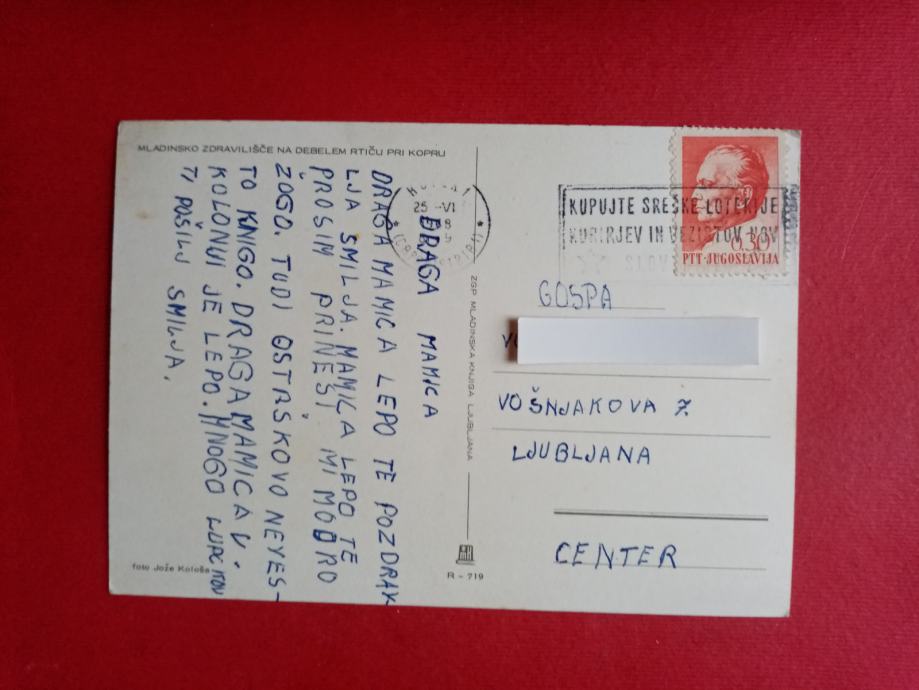 MLADINSKO ZDRAVILIŠČE NA DEBELEM RTIČU PRI KOPRU
DRAGA MAMICA
DRAGA MAMICA LEPO TE POZDRAV
LJA SMILJA. MAMICA LEPO TE
PROSIM PRINESI MI MODRO
ŽOGO. TUDI OSTRŠKOVO NEVES-
TO KNIGO. DRAGA MAMICA V.
KOLONIJI JE LEPO. MNOGO LUPČKOV
TI POŠILJ SMILJA.
foto Jože Kološa
ZGP MLADINSKA KNJIGA LJUBLJANA
R-719
25 -VI
KUPUJTE SREČKE LOTERIJE
KURIRJEV IN VEZISTOV NOV
0.30
PTT-JUGOSLAVIJA
GOSPA
VOŠNJAKOVA 7.
LJUBLJANA
CENTER